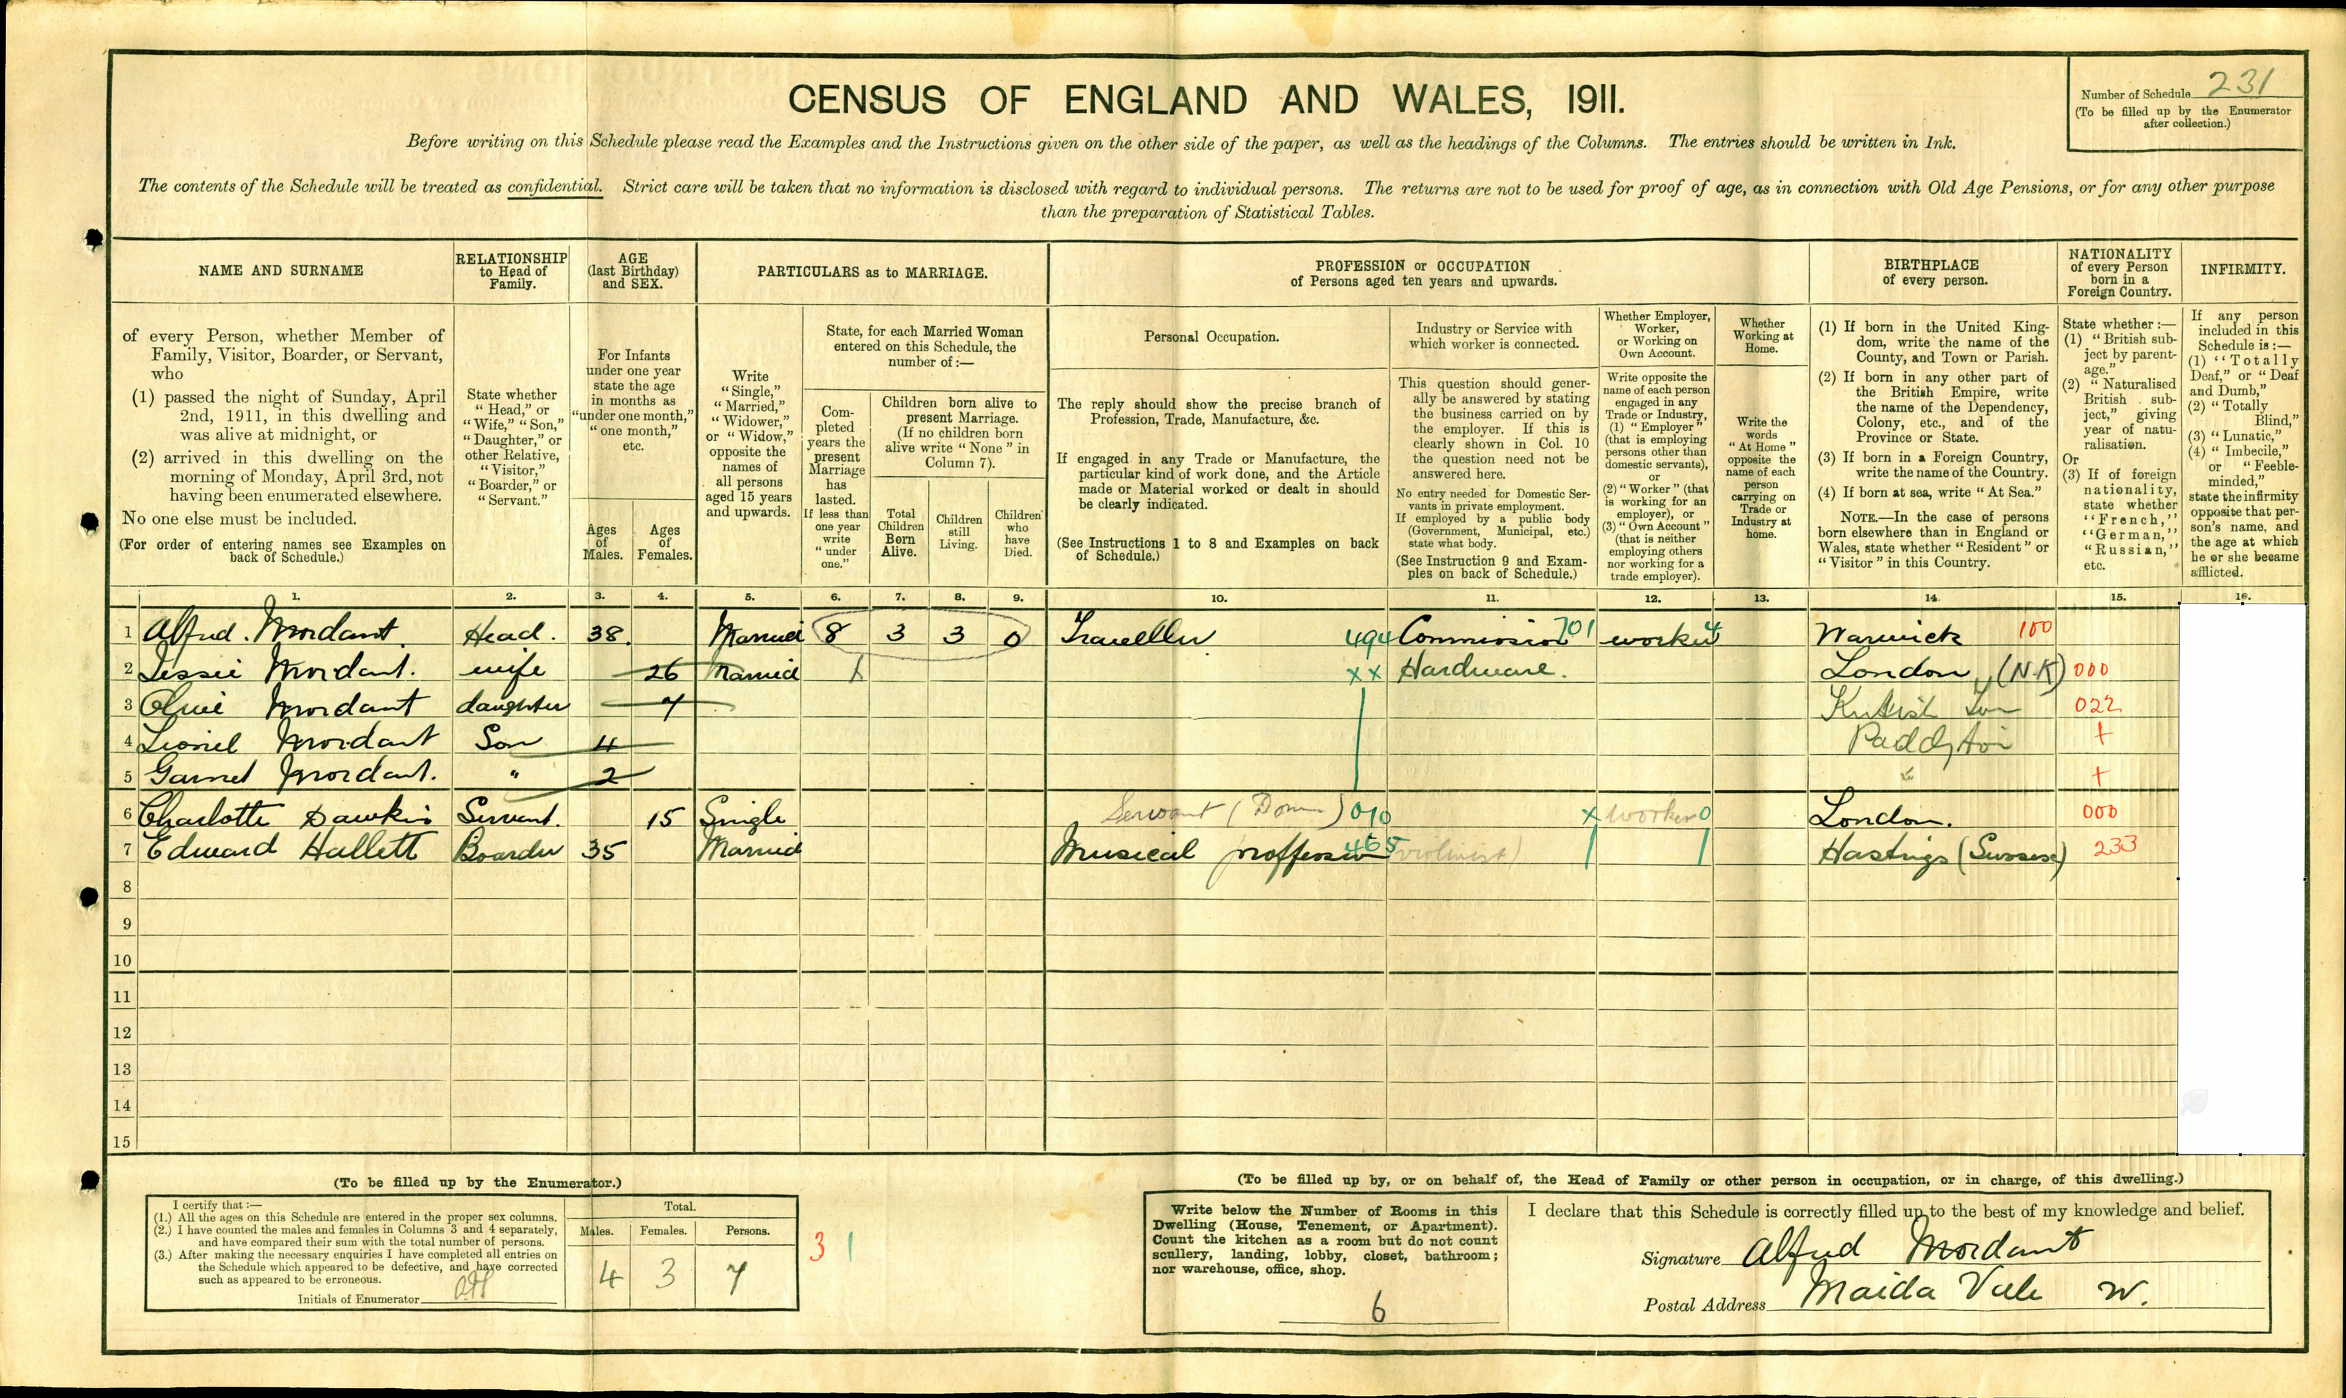 CENSUS OF ENGLAND AND WALES, 1911.
Number of Schedule 231
(To be filled up by the Enumerator
after collection.)
Before writing on this Schedule please read the Examples and the Instructions given on the other side of the paper, as well as the headings of the Columns. The entries should be written in Ink.
The contents of the Schedule will be treated as confidential. Strict care will be taken that no information is disclosed with regard to individual persons. The returns are not to be used for proof of age, as in connection with Old Age Pensions, or for any other purpose
than the preparation of Statistical Tables.
NAME AND SURNAME
of every Person, whether Member of
Family, Visitor, Boarder, or Servant,
who
(1) passed the night of Sunday, April
2nd, 1911, in this dwelling and
was alive at midnight, or
(2) arrived in this dwelling on the
morning of Monday, April 3rd, not
having been enumerated elsewhere.
No one else must be included.
(For order of entering names see Examples on
back of Schedule.)
RELATIONSHIP
to Head of
Family.
State whether
"Head," or
"Wife," "Son,"
"Daughter," or
other Relative,
"Visitor,"
"Boarder," or
"Servant."
AGE
(last Birthday)
and SEX.
For Infants
under one year
state the age
in months as
"under one month,"
"one month,"
etc.
Ages
of
Males.
Ages
of
Females.
PARTICULARS as to MARRIAGE.
Write
"Single,"
"Married,"
"Widower,"
or "Widow,"
opposite the
names of
all persons
aged 15 years
and upwards.
State, for each Married Woman
entered on this Schedule, the
number of:—
Com-
pleted
years the
present
Marriage
has
lasted.
If less than
one year
write
"under
one."
Children born alive to
present Marriage.
(If no children born
alive write "None" in
Column 7).
Total
Children
Born
Alive.
Children
still
Living.
Children
who
have
Died.
PROFESSION or OCCUPATION
of Persons aged ten years and upwards.
Personal Occupation.
The reply should show the precise branch of
Profession, Trade, Manufacture, &c.
If engaged in any Trade or Manufacture, the
particular kind of work done, and the Article
made or Material worked or dealt in should
be clearly indicated.
(See Instructions 1 to 8 and Examples on back
of Schedule.)
Industry or Service with
which worker is connected.
This question should gener-
ally be answered by stating
the business carried on by
the employer. If this is
clearly shown in Col. 10
the question need not be
answered here.
No entry needed for Domestic Ser-
vants in private employment.
If employed by a public body
(Government, Municipal, etc.)
state what body.
(See Instruction 9 and Exam-
ples on back of Schedule.)
Whether Employer,
Worker,
or Working on
Own Account.
Write opposite the
name of each person
engaged in any
Trade or Industry,
(1) "Employer"
(that is employing
persons other than
domestic servants),
or
(2) "Worker" (that
is working for an
employer), or
(3) "Own Account"
(that is neither
employing others
nor working for a
trade employer).
Whether
Working at
Home.
Write the
words
"At Home"
opposite the
name of each
person
carrying on
Trade or
Industry at
home.
BIRTHPLACE
of every person.
(1) If born in the United King-
dom, write the name of the
County, and Town or Parish.
(2) If born in any other part of
the British Empire, write
the name of the Dependency,
Colony, etc., and of the
Province or State.
(3) If born in a Foreign Country,
write the name of the Country.
(4) If born at sea, write "At Sea."
NOTE.—In the case of persons
born elsewhere than in England or
Wales, state whether "Resident" or
"Visitor" in this Country.
NATIONALITY
of every Person
born in a
Foreign Country.
State whether:—
(1) "British sub-
ject by parent-
age."
(2) "Naturalised
British sub-
ject," giving
year of natu-
ralisation.
Or
(3) If of foreign
nationality,
state whether
"French,"
"German,"
"Russian,"
etc.
INFIRMITY.
If any person
included in this
Schedule is:—
(1) "Totally
Deaf," or "Deaf
and Dumb,"
(2) "Totally
Blind,"
(3) "Lunatic,"
(4) "Imbecile,"
or "Feeble-
minded,"
state the infirmity
opposite that per-
son's name, and
the age at which
he or she became
afflicted.
1. 2. 3. 4. 5. 6. 7. 8. 9. 10. 11. 12. 13. 14. 15. 16.
1 Alfred. Mordant. Head. 38. Married 8 3 3 0 Traveller 494 Commission 701 worker 4 Warwick 100
2 Jessie Mordant. wife 26 Married xx Hardware. London (N.K) 000
3 Olive Mordant daughter 7 Kentish Tn 022
4 Lionel Mordant Son 4 Paddington +
5 Garnet Mordant. " 2 +
6 Charlotte Dawkins Servant. 15 Single Servant (Dom) 010 x worker 0 London. 000
7 Edward Hallett Boarder 35 Married Musical proffession 465 (violinist) Hastings (Sussex) 233
8
9
10
11
12
13
14
15
(To be filled up by the Enumerator.)
I certify that:—
(1.) All the ages on this Schedule are entered in the proper sex columns.
(2.) I have counted the males and females in Columns 3 and 4 separately,
and have compared their sum with the total number of persons.
(3.) After making the necessary enquiries I have completed all entries on
the Schedule which appeared to be defective, and have corrected
such as appeared to be erroneous.
Initials of Enumerator
Total.
Males. Females. Persons.
4 3 7
3 1
(To be filled up by, or on behalf of, the Head of Family or other person in occupation, or in charge, of this dwelling.)
Write below the Number of Rooms in this
Dwelling (House, Tenement, or Apartment).
Count the kitchen as a room but do not count
scullery, landing, lobby, closet, bathroom;
nor warehouse, office, shop.
6
I declare that this Schedule is correctly filled up to the best of my knowledge and belief.
Signature Alfred Mordant
Postal Address Maida Vale W.